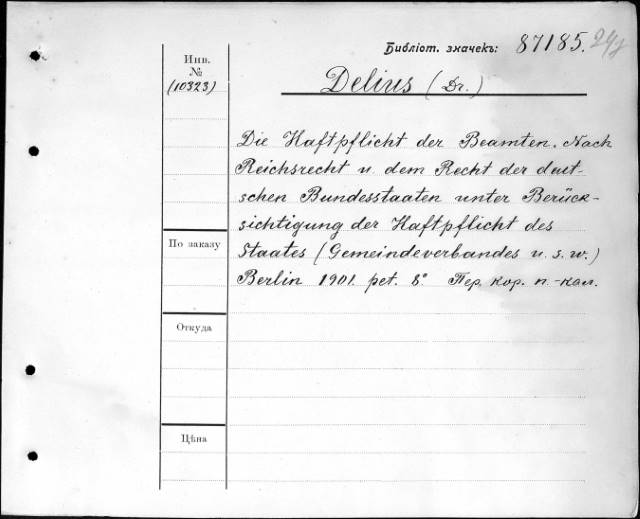 Библіот. значекъ: 87185.
Инв.
№
(10323)
Delius (Dr.)
Die Haftpflicht der Beamten. Nach
Reichsrecht u. dem Recht der deut-
schen Bundesstaaten unter Berück-
sichtigung der Haftpflicht des
Staates (Gemeindeverbandes u. s. w.)
Berlin 1901. pet. 8° Пер. кор. п.-кал.
По заказу
Откуда
Цѣна